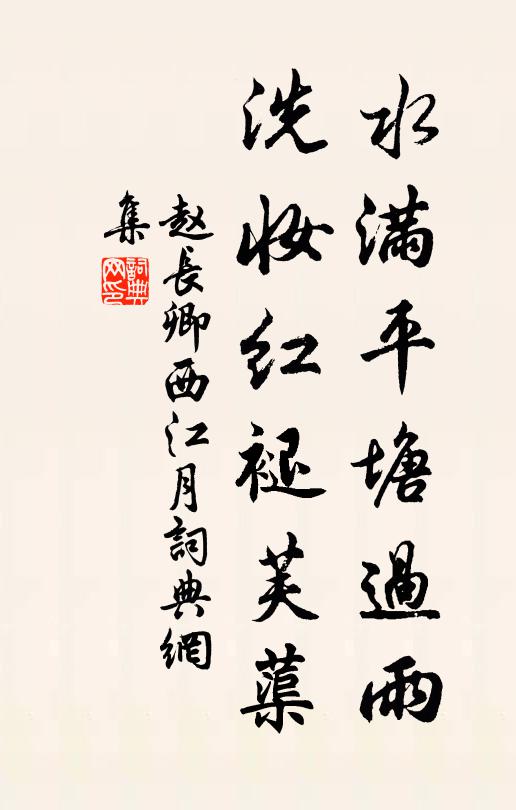 水满平塘過雨
洗妆红褪芙蕖
赵長卿西江月詞典網
集
詞典
网印